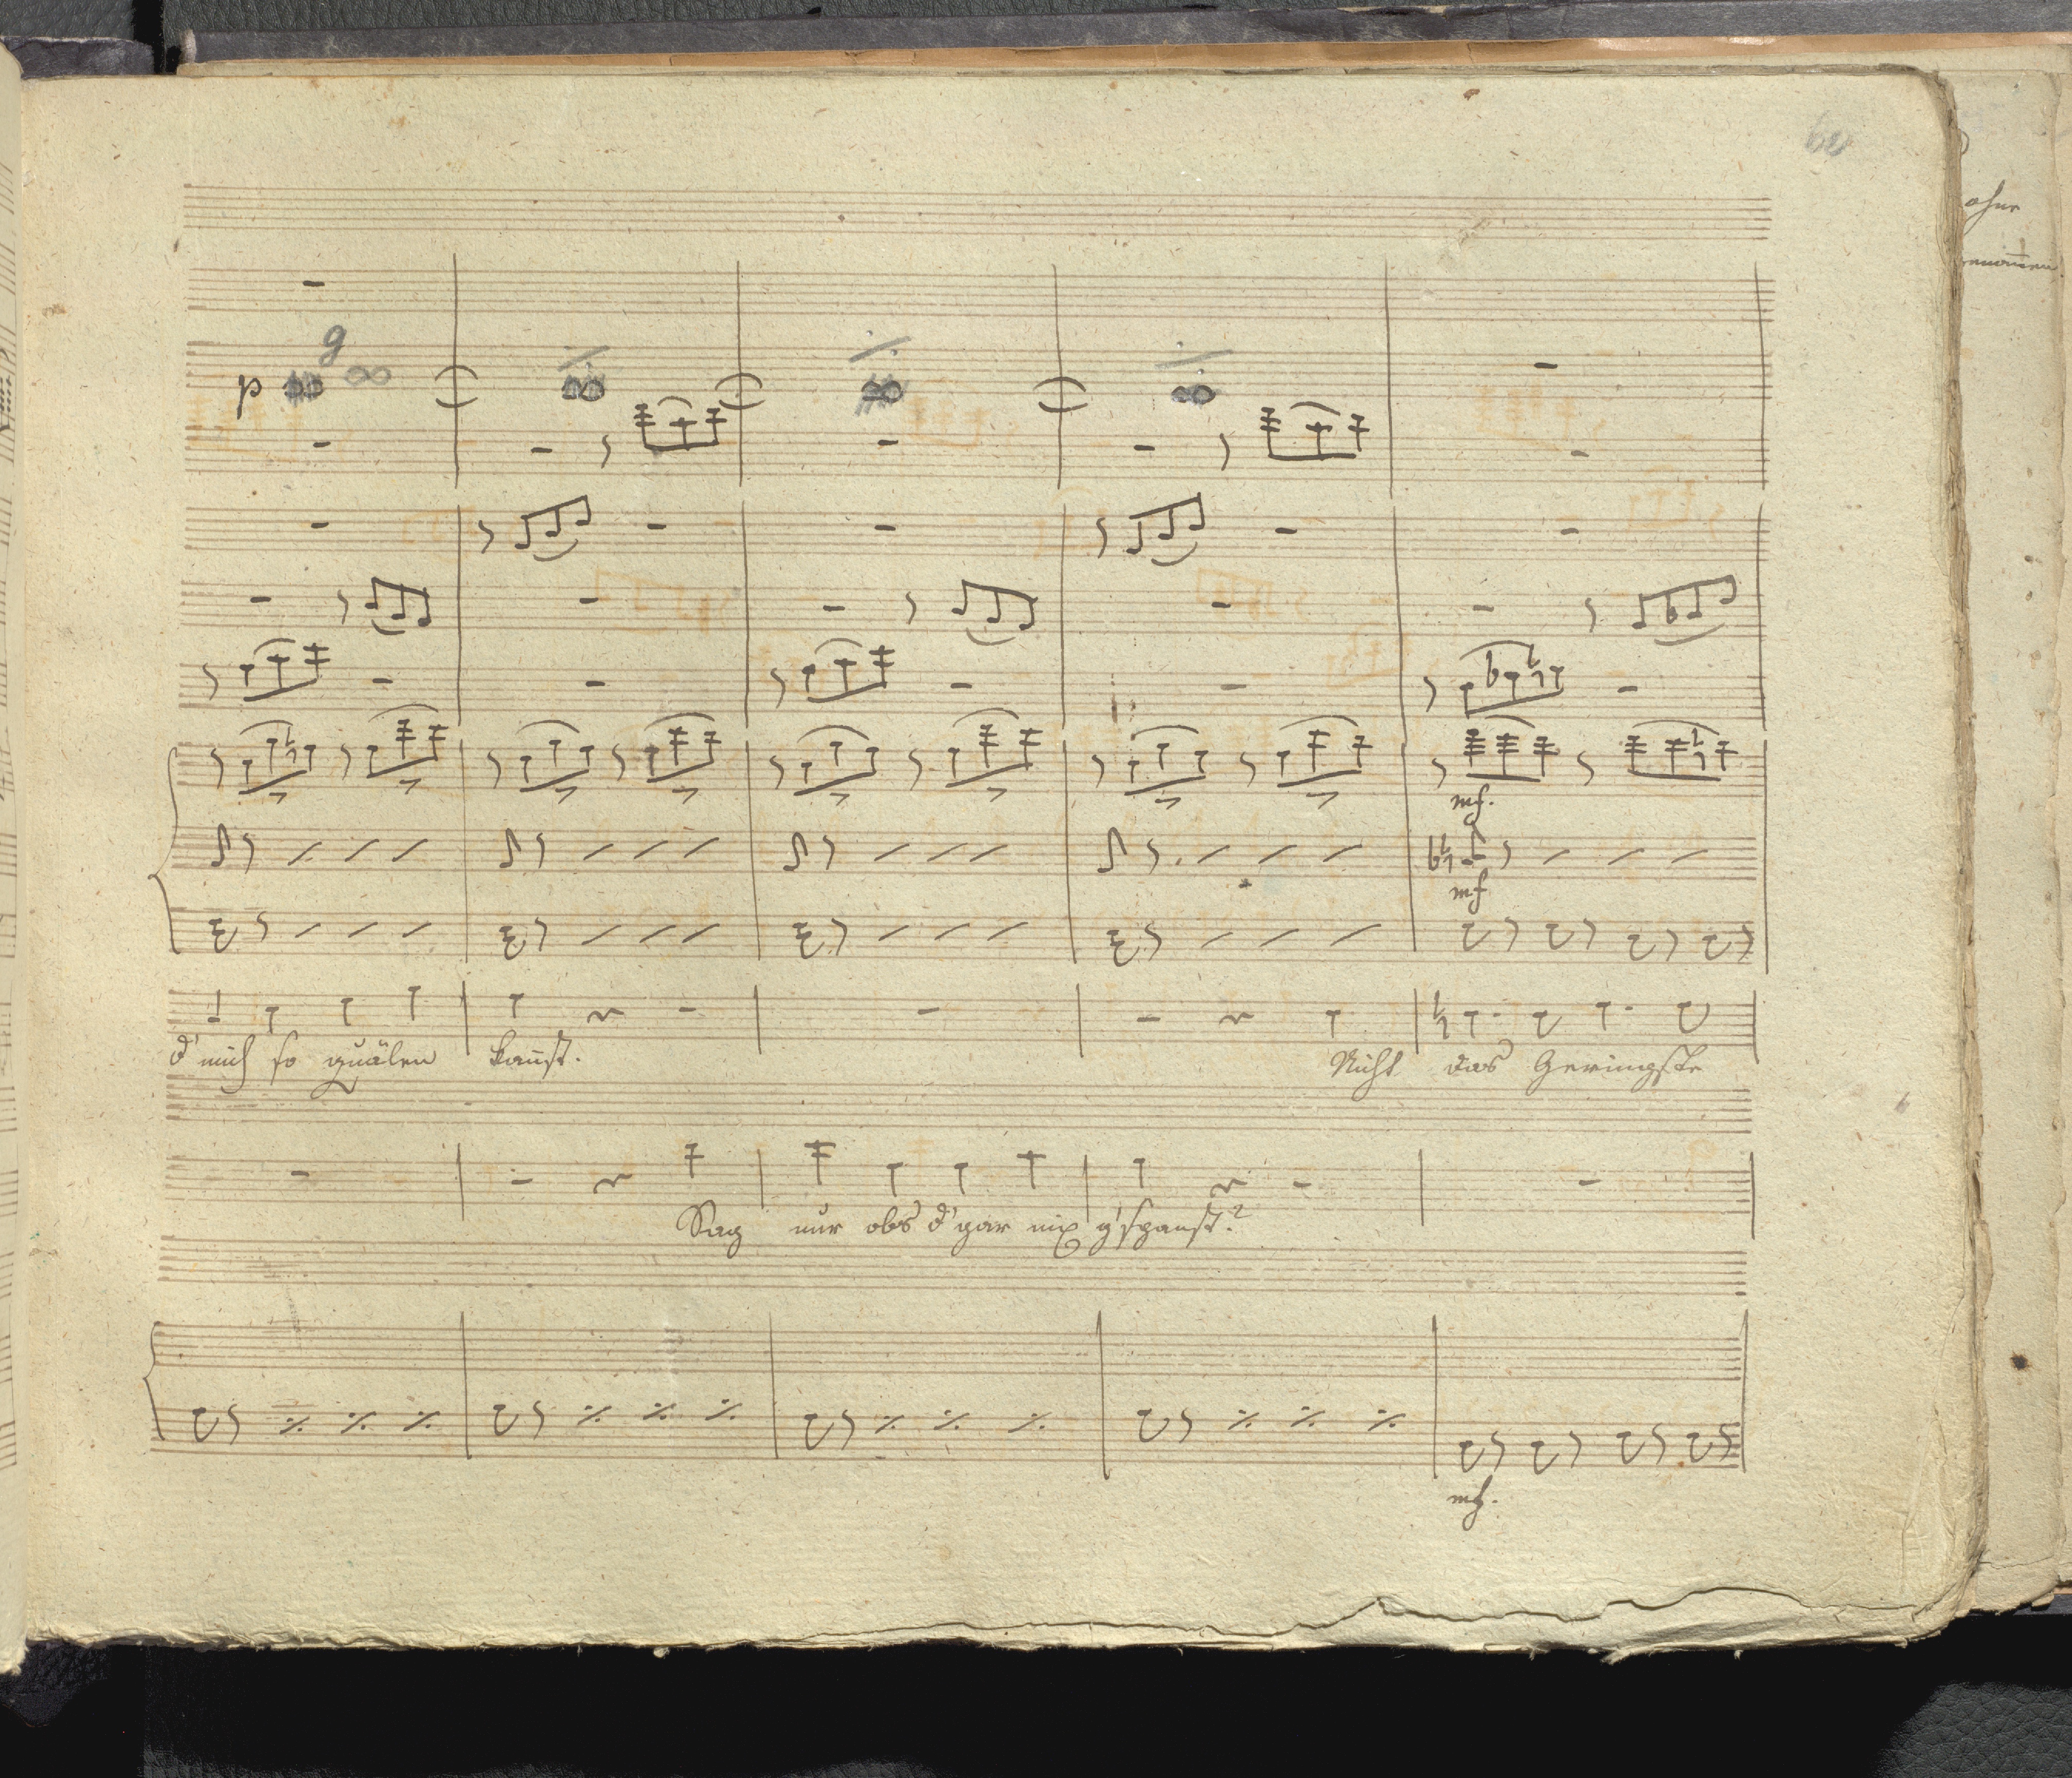 ohne
g
p
mf.
mf
d' mich so quälen kanst. Nicht das Geringste
Sag nur obs d' gar nix g'spanst?
mf.